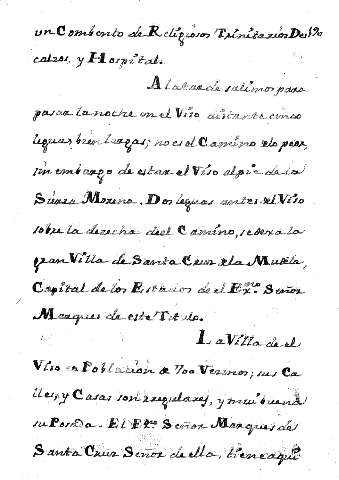 un Combento de Religiosos Trinitarios Des
calzos, y Hospital.
A la tarde salimos para
pasar la noche en el Viso distante cinco
leguas bien largas; no es el Camino de lo peor,
sin embargo de estar el Viso al pie de la
Sierra Morena. Dos leguas antes del Viso
sobre la derecha del Camino, se dexa la
gran Villa de Santa Cruz de la Mudela,
Capital de los Estados de el Exmo. Señor
Marques de este Titulo.
La Villa de el
Viso es Poblacion de 700 Vecinos; sus Ca
lles, y Casas son regulares, y mui buena
su Posada. El Exmo. Señor Marques de
Santa Cruz Señor de ella, tiene aqui